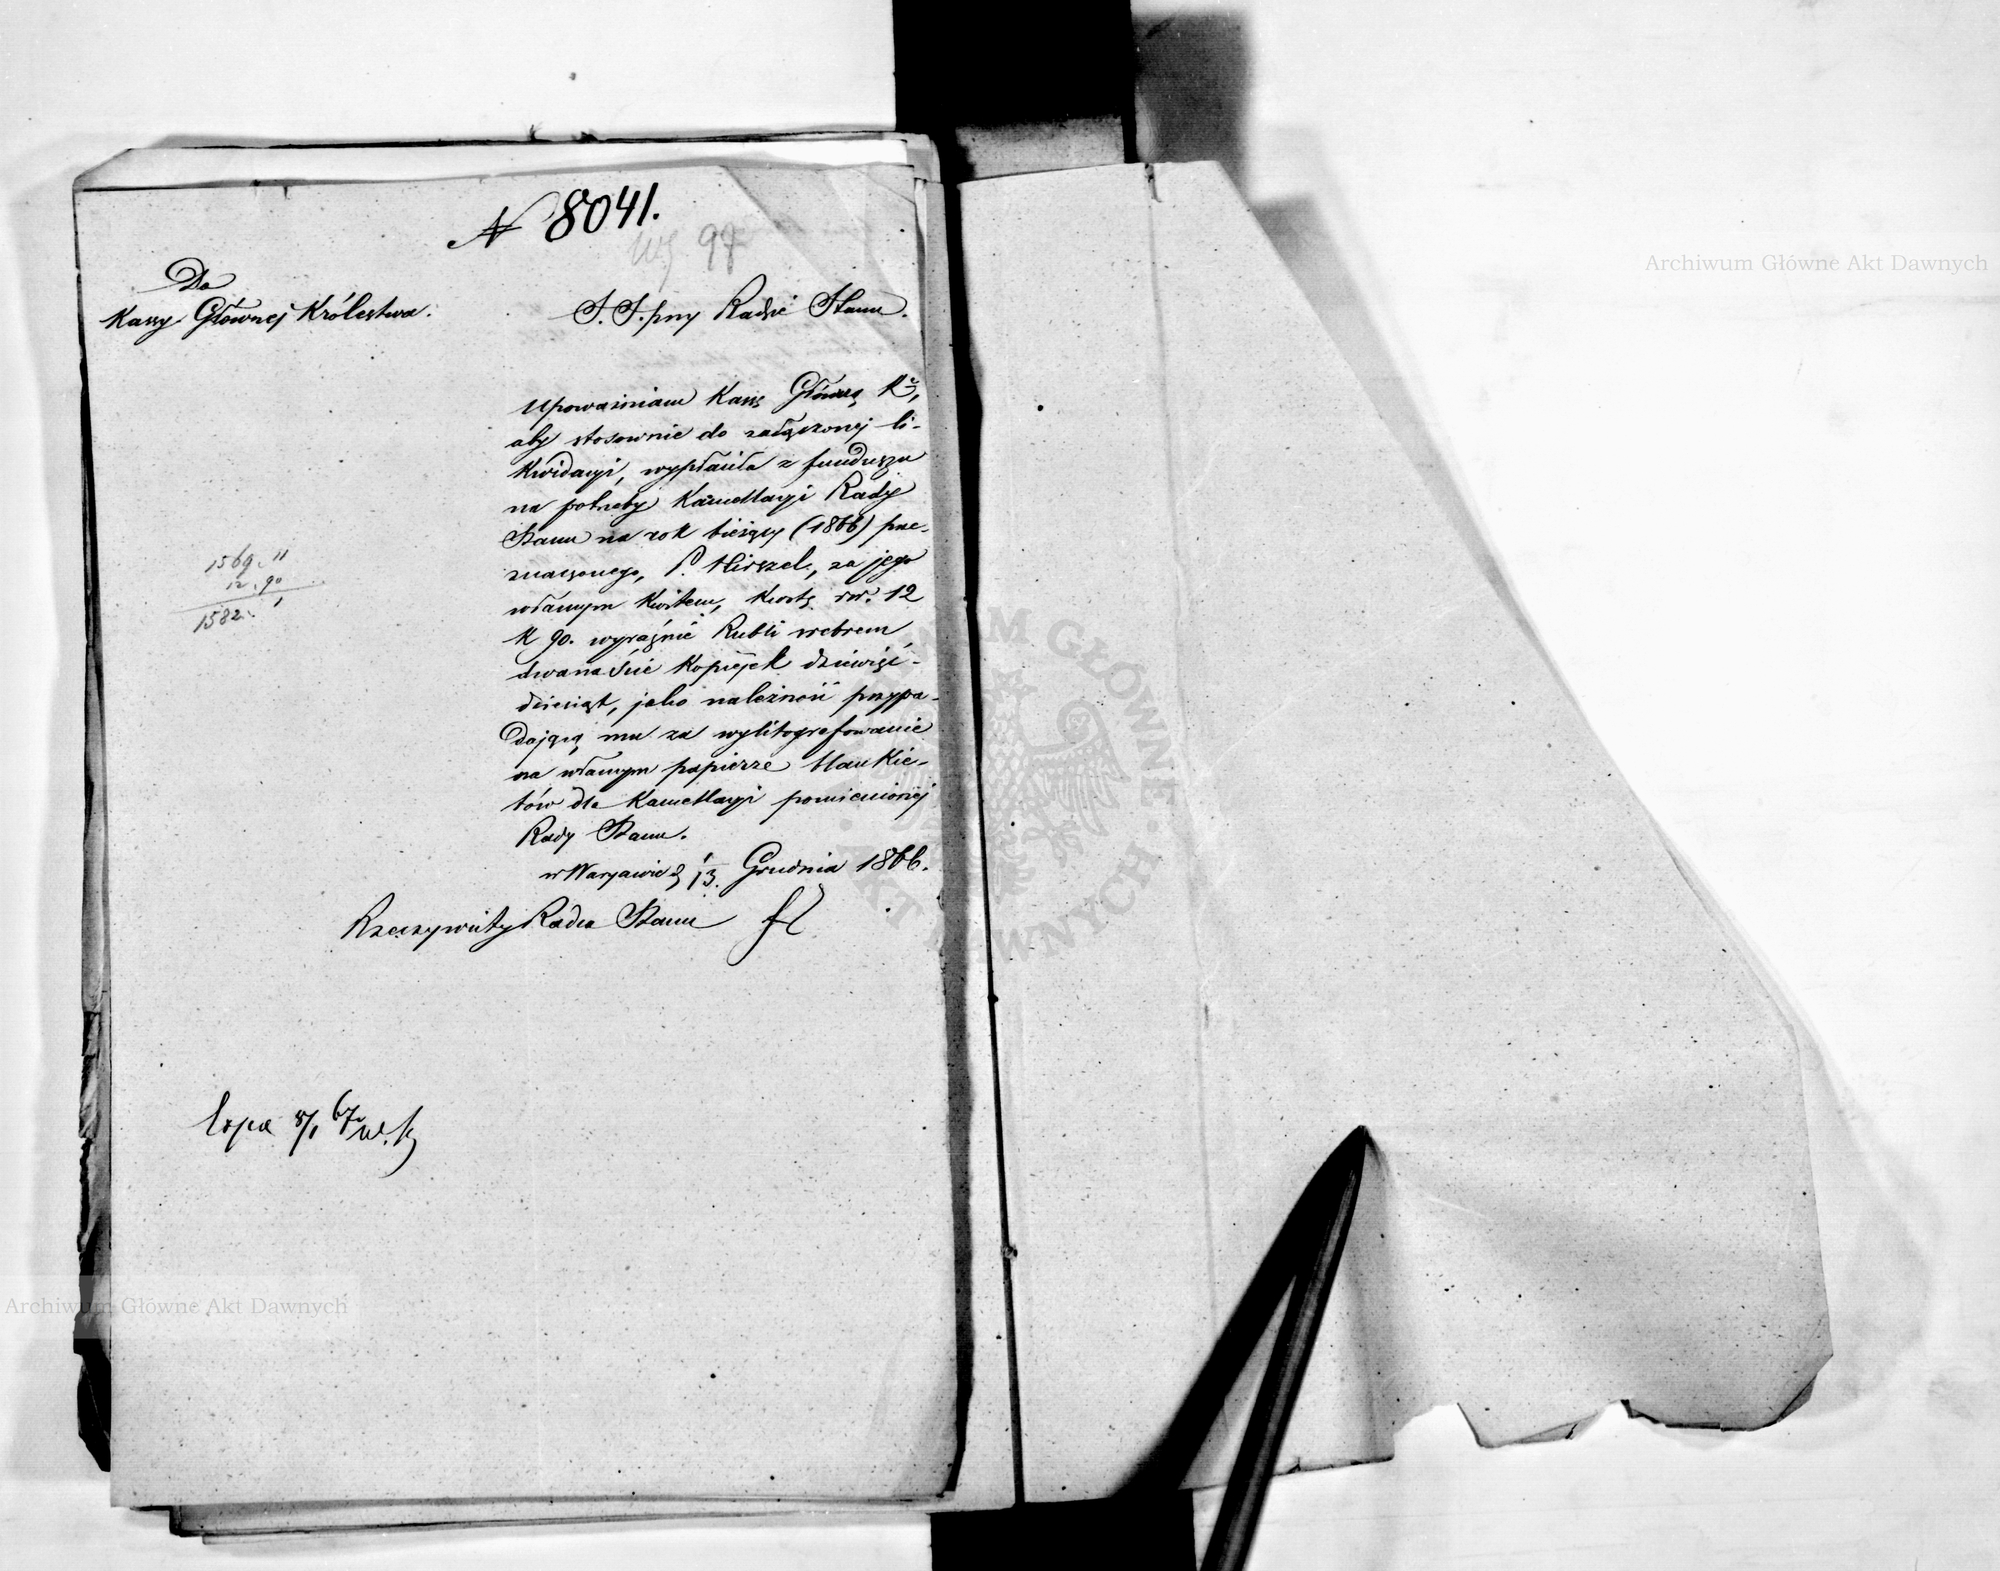 N 8041.
98
Do
Kassy Głównej Królestwa.
S. S. przy Radzie Stanu.
Upoważniam Kassę Główną Kr,
aby stosownie do załączonej li-
kwidacyi, wypłaciła z funduszu
na potrzeby Kancellaryi Rady
Stanu na rok bieżący (1866) prze-
znaczonego, P. Hirszel, za jego
własnym kwitem, kwotę rsr. 12
k 90. wyraźnie Rubli srebrem
dwanaście kopiejek dziewięć-
dziesiąt, jako należność przypa-
dającą mu za wylitografowanie
na własnym papierze blankie-
tów dla Kancellaryi pomienionej
Rady Stanu.
w Warszawie d 1/13. Grudnia 1866.
Rzeczywisty Radca Stanu
1569. 11
12. 90
1582. 1
Exp 8/1 67
Archiwum Główne Akt Dawnych
Archiwum Główne Akt Dawnych
ARCHIWUM GŁÓWNE AKT DAWNYCH